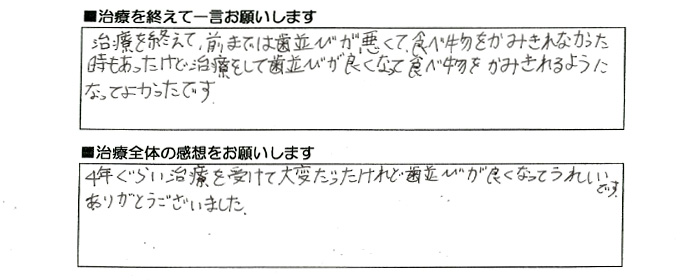 ■治療を終えて一言お願いします
治療を終えて、前までは歯並びが悪くて、食べ物をかみきれなかった
時もあったけど治療をして歯並びが良くなって食べ物をかみきれるように
なってよかったです
■治療全体の感想をお願いします
4年ぐらい治療を受けて大変だったけれど歯並びが良くなってうれしいです。
ありがとうございました。